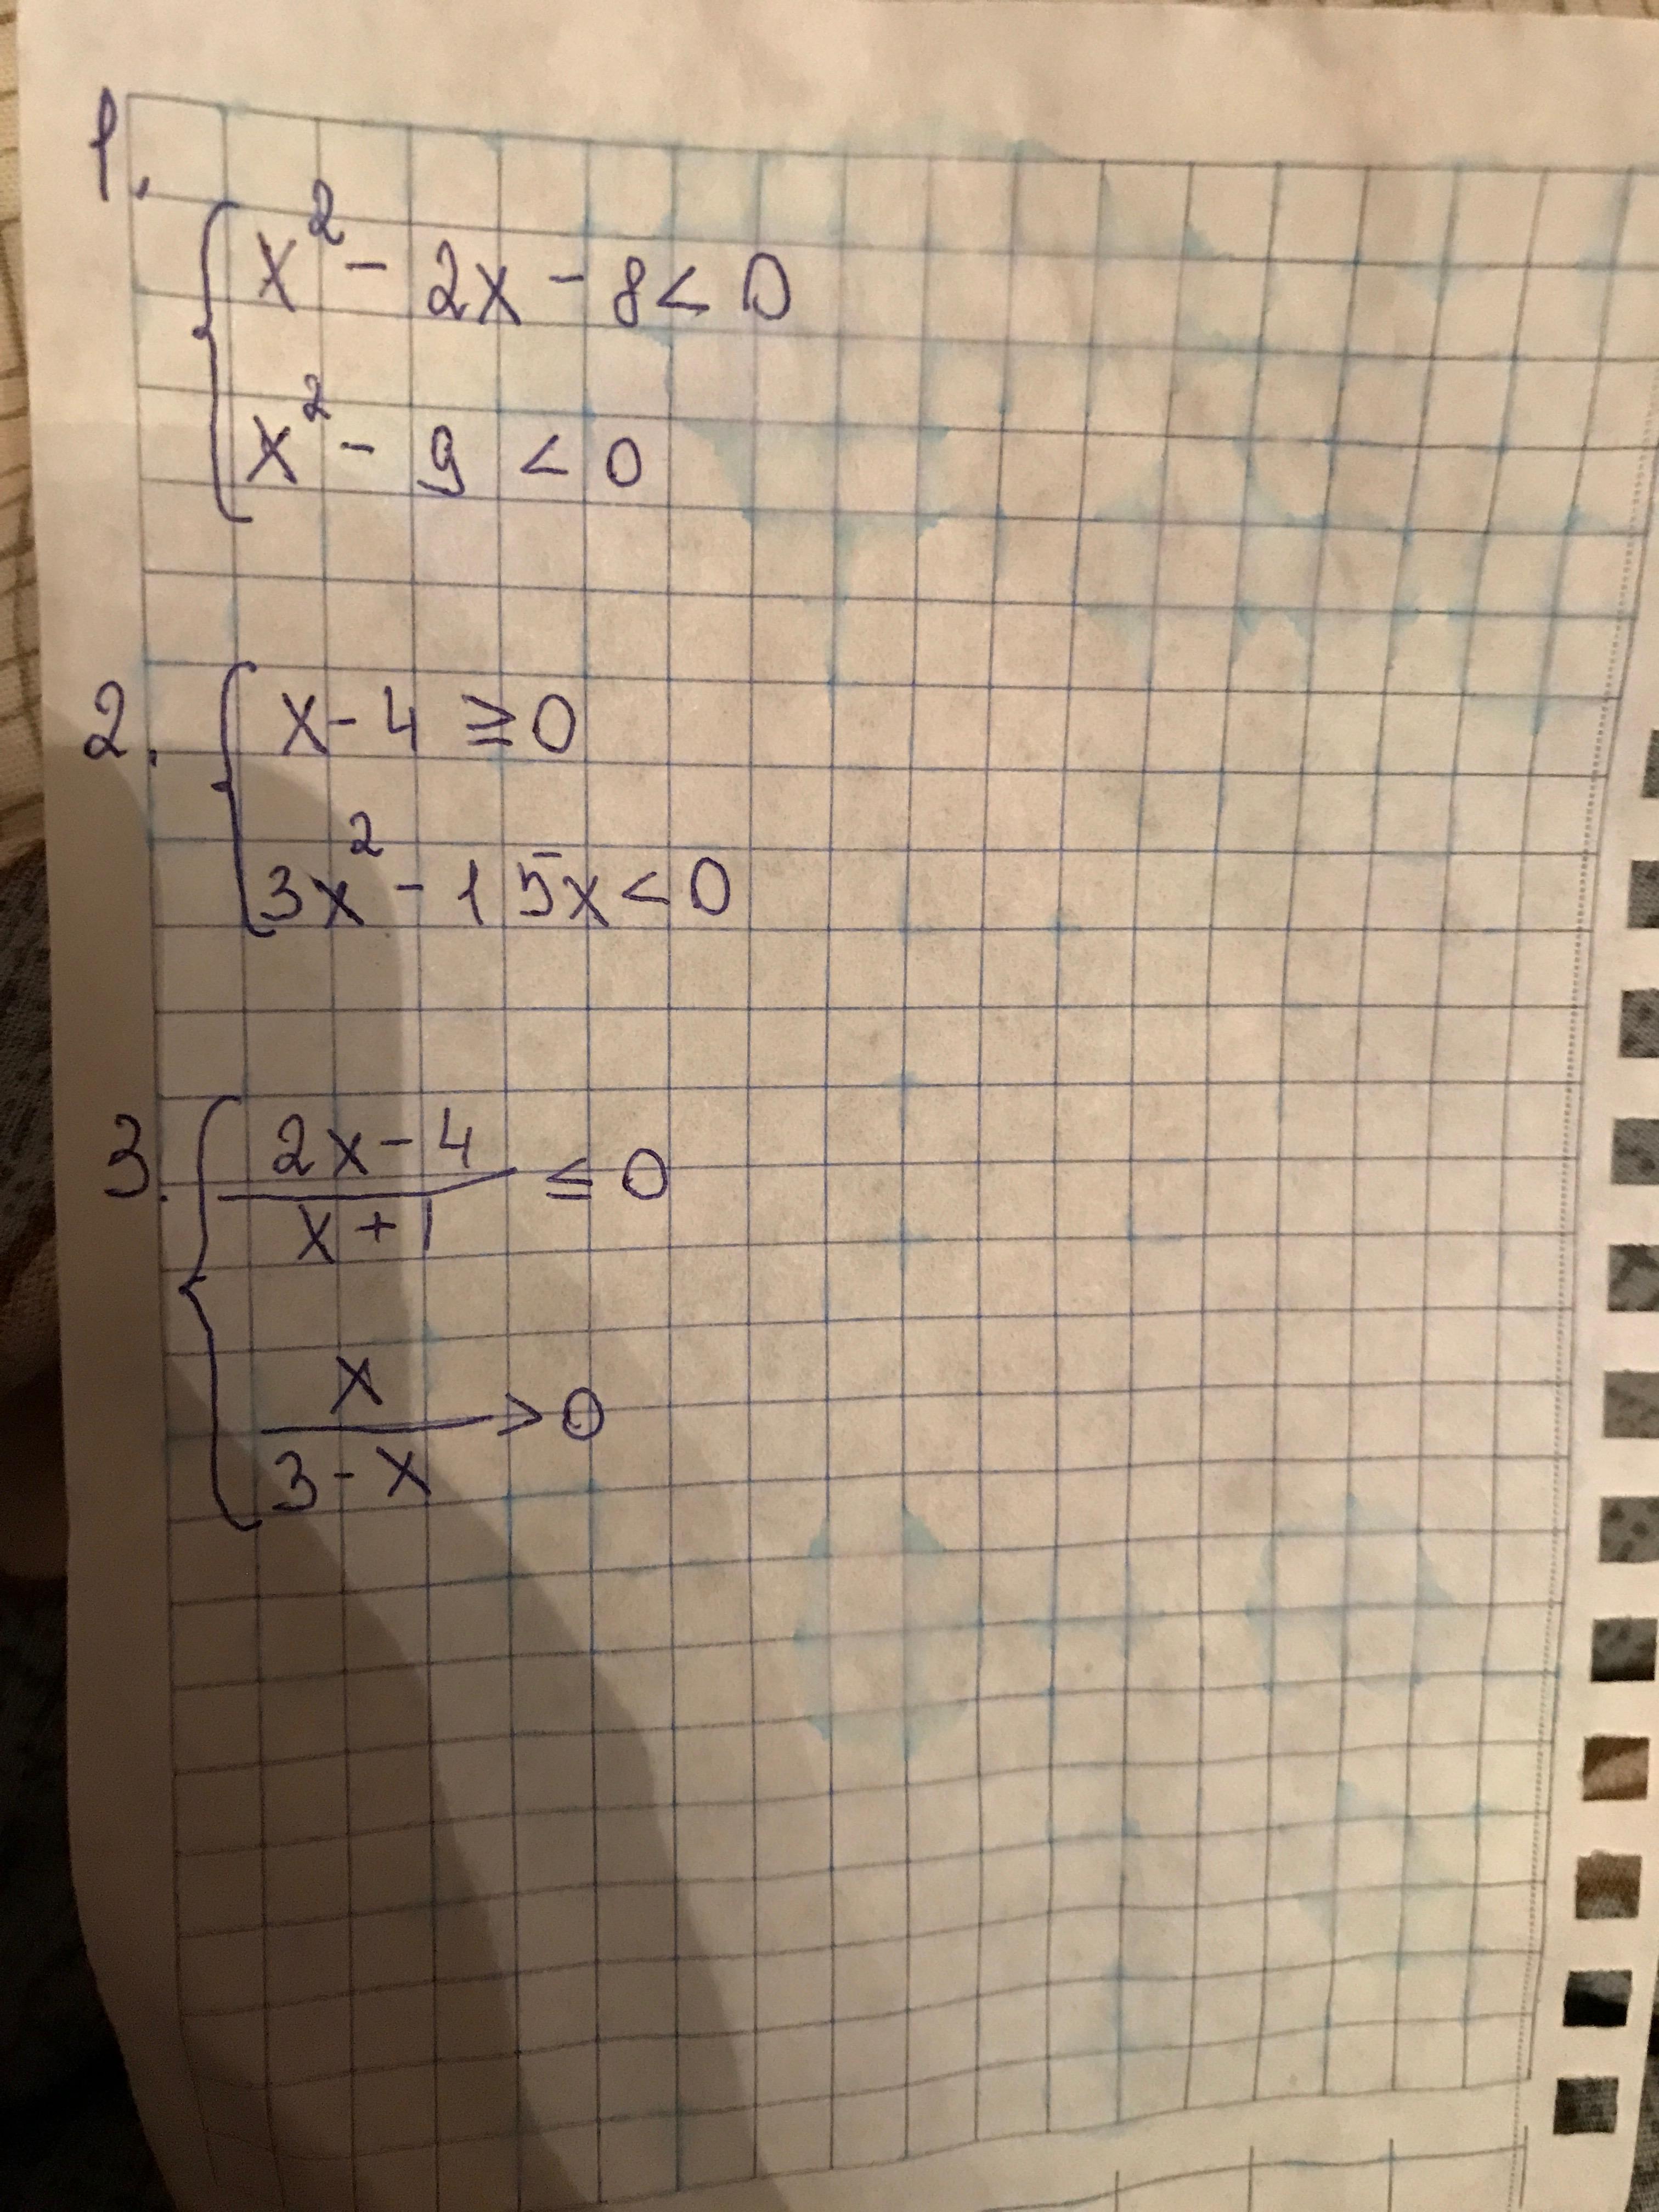 1.
x² - 2x - 8 < 0
x² - 9 < 0
2.
x - 4 ≥ 0
3x² - 15x < 0
3.
2x - 4
x + 1
≤ 0
x
3 - x
> 0